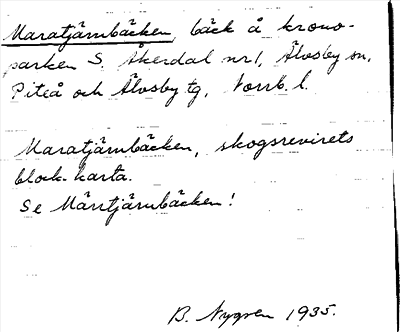 Maratjärnbäcken, bäck å krono-
parken S. Åkerdal nr 1, Älvsby sn,
Piteå och Älvsby tg, Norrb. l.
Maratjärnbäcken, skogsrevirets
block-karta.
Se Märrtjärnbäcken!
B. Nygren 1935.